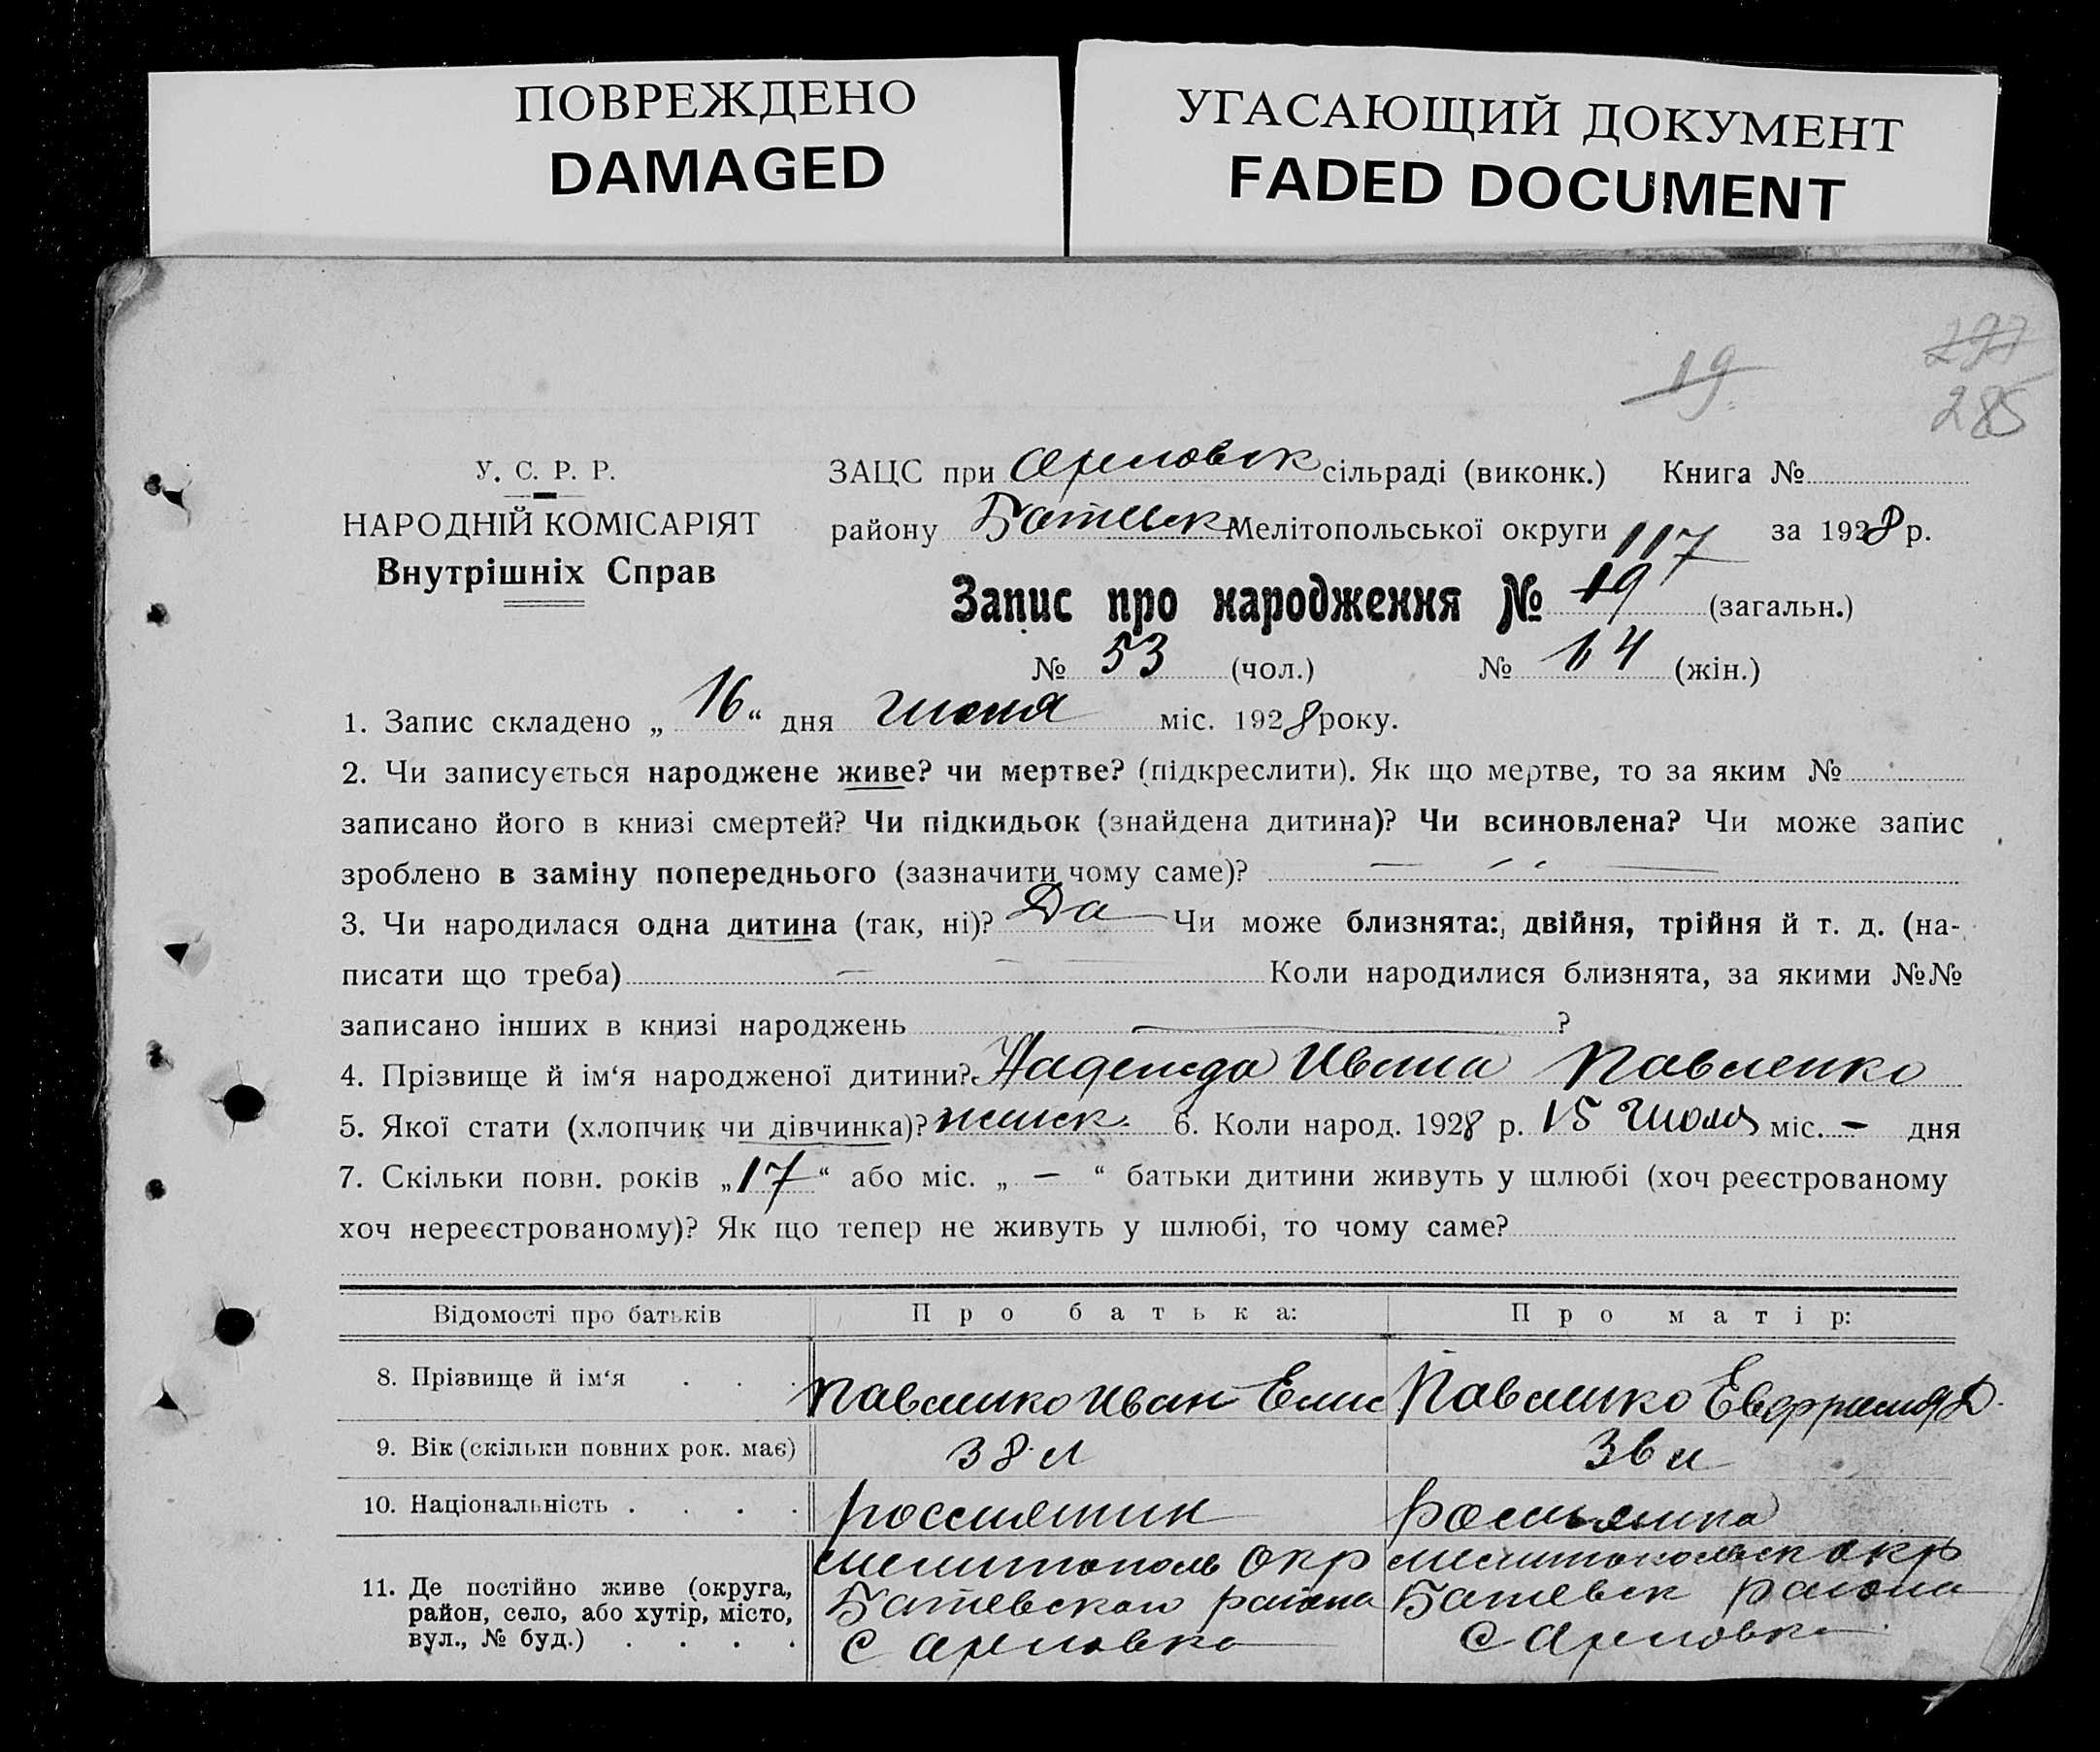 ПОВРЕЖДЕНО
DAMAGED
УГАСАЮЩИЙ ДОКУМЕНТ
FADED DOCUMENT
297
19
285
У. С. Р. Р.
НАРОДНІЙ КОМІСАРІЯТ
Внутрішніх Справ
ЗАЦС при Орловск сільраді (виконк.) Книга №
району Мелітопольської округи за 1928 р.
117
Запис про народження № 19 (загальн.)
№ 53 (чол.) № 64 (жін.)
1. Запис складено „ 16 “ дня июня міс. 1928 року.
2. Чи записується народжене живе? чи мертве? (підкреслити). Як що мертве, то за яким №
записано його в книзі смертей? Чи підкидьок (знайдена дитина)? Чи всиновлена? Чи може запис
зроблено в заміну попереднього (зазначити чому саме)? —
3. Чи народилася одна дитина (так, ні)? Да Чи може близнята: двійня, трійня й т. д. (на-
писати що треба) — Коли народилися близнята, за якими №№
записано інших в книзі народжень — ?
4. Прізвище й ім‘я народженої дитини? Надежда Ивана Павленко
5. Якої стати (хлопчик чи дівчинка)? женск. 6. Коли народ. 1928 р. 15 міс. — дня
7. Скільки повн. років „ 17 “ або міс. „ — “ батьки дитини живуть у шлюбі (хоч реєстрованому
хоч нереєстрованому)? Як що тепер не живуть у шлюбі, то чому саме?
Відомості про батьків
Про батька:
Про матір:
8. Прізвище й ім‘я . . .
Павленко Иван Елис
Павленко Д.
9. Вік (скільки повних рок. має)
38 л
36 л
10. Національність . . . .
россиянин
россиянка
11. Де постійно живе (округа,
район, село, або хутір, місто,
вул., № буд.) . . . .
мелитополь Окр
района
с Орловка
мелитопольск окр
района
с Орловка